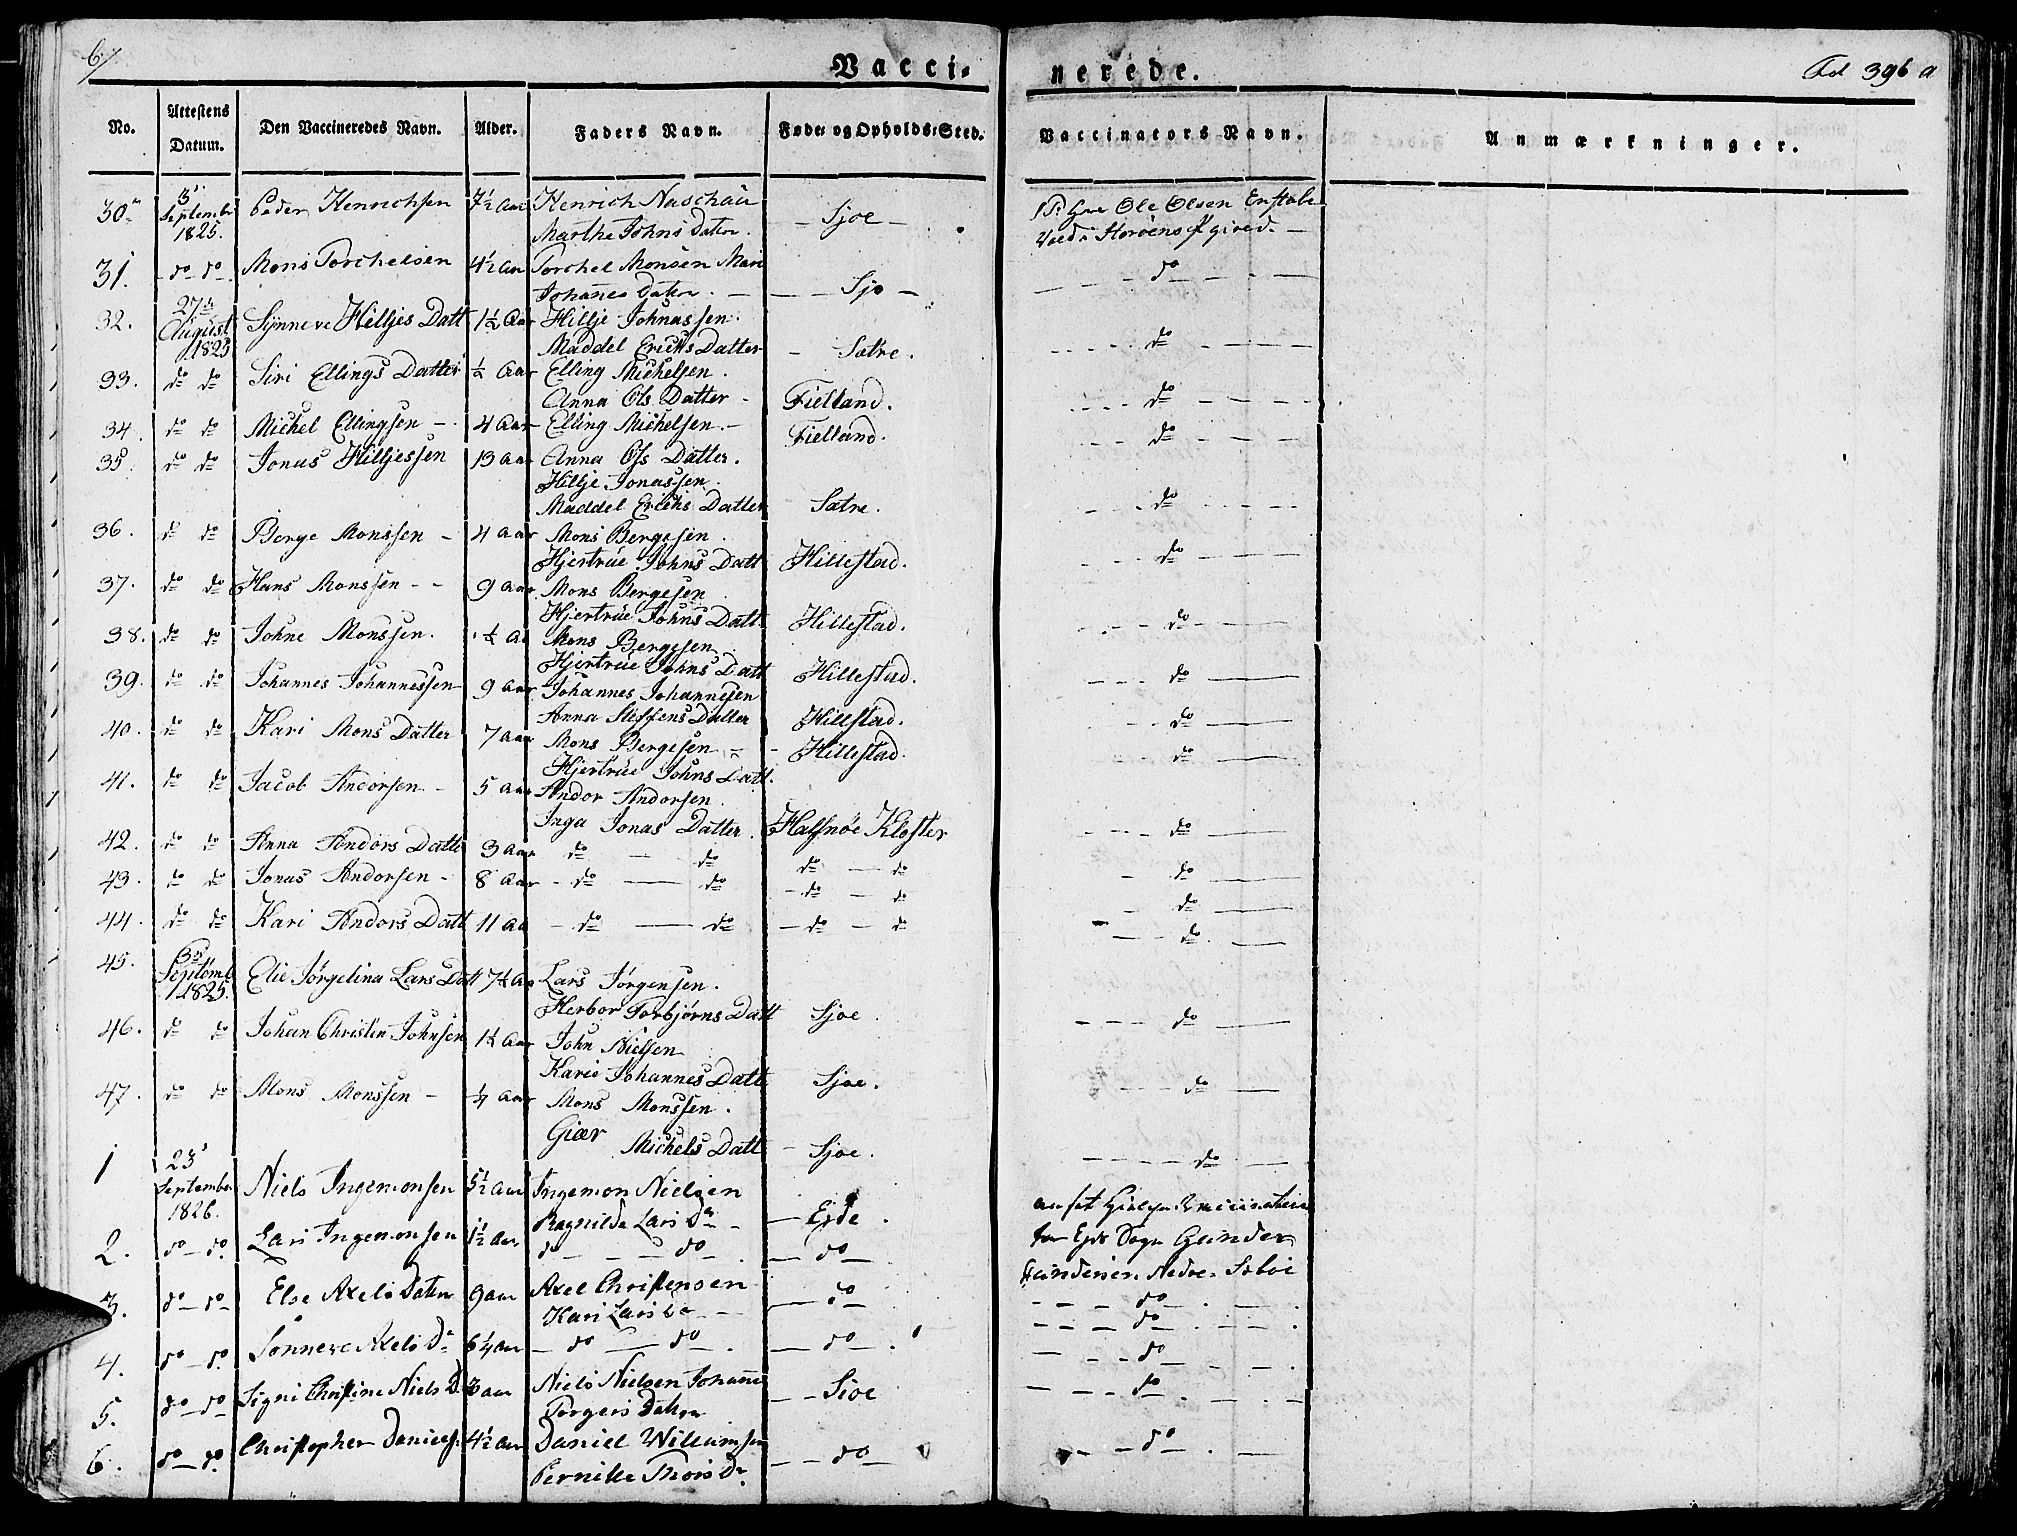 6/
Vacci- nerede.
Fol 396 a
No. Attestens Datum. Den Vaccineredes Navn. Alder. Faders Navn. Føde- og Opholds-Sted. Vaccinators Navn. Anmærkninger.
30 3' Septembr 1825. Peder Henrichsen 7½ Aar Henrich Naschau
Marthe Johns Datter. — Sjoe — Ole Olsen
31. do do Mons Torchelsen 4½ Aar Torchel Monsen Mari
Johanes Datter. — Sjo — do
32. 27de August 1825 Synneve Hilljes Datt 1½ Aar Hillje Johnassen.
Maddel Ericks Datter - Satre. do
33. do do Siri Ellings Datter ½ Aar Elling Michelsen.
Anna Ols Datter - Fielland. do
34. do do Michel Ellingsen - 4 Aar Elling Michelsen. - Fielland. do
35. do do Jonas Hilljessen 13 Aar Anna Ols Datter.
Hillje Jonassen.
Maddel Ericks Datter Satre. do
36. do do Berge Monssen - 4 Aar Mons Bergesen.
Hjertrue Johns Datt Hillestad. do
37. do do Hans Monssen - - 9 Aar Mons Bergesen
Hjertrue Johns Datt Hillestad. do
38. do do Johne Monssen. Mons Bergesen
Hjertrue Johns Datt Hillestad. do
39. do do Johannes Johannessen 9 Aar Johannes Johannesen
Anna Steffens Datter Hillestad. do
40. do do Kari Mons Datter 7 Aar Mons Bergesen - - Hillestad. do
Hjertrue Johns Datt.
41. do do Jacob Andorsen - 5 Aar Andor Andorsen.
Inga Jonas Datter. Halsnøe Kloster do
42. do do Anna Andors Datte 3 Aar do — do do — do do
43. do do Jonas Andorsen - 8 Aar - do — do - do — do do
44. do do Kari Andors Datt 11 Aa - do — do - do - do do
45. 3de Septemb 1825. Elie Jørgelina Lars Datt Lars Jørgensen.
Herbor Torbjørns Datt Sjoe. do
46. do do Johan Christin Johnsen Aar John Nielsen
Karie Johannes Datt Sjoe. do
47. do do Mons Monssen - ¼ Aar Mons Monssen.
Giær Michels Datt - Sjoe. do
1 23' September 1826. Niels Ingemonsen 5½ Aar Ingemon Nielsen
Ragnilde Lars Dr - — Ejde.
2. do — do. Lars Ingemonsen 1½ Aar do — — do — — do — for Ejde Sogn Gunder
3. do — do Else Axels Datter 9 aar Axel Christensen
Kari Lars Dr — — do — do
do
4. do — do Sønneve Axels Dr 6¼ Aar — do — do — . — do — . do
5. do — do Signi Christine Niels D. aar Niels Nielsen Johanne
Torgers Datter — Sioe do
6. do — do. Christopher Daniels. 4½ Aar Daniel Willumsen
Pernille Thors Dr — do — do